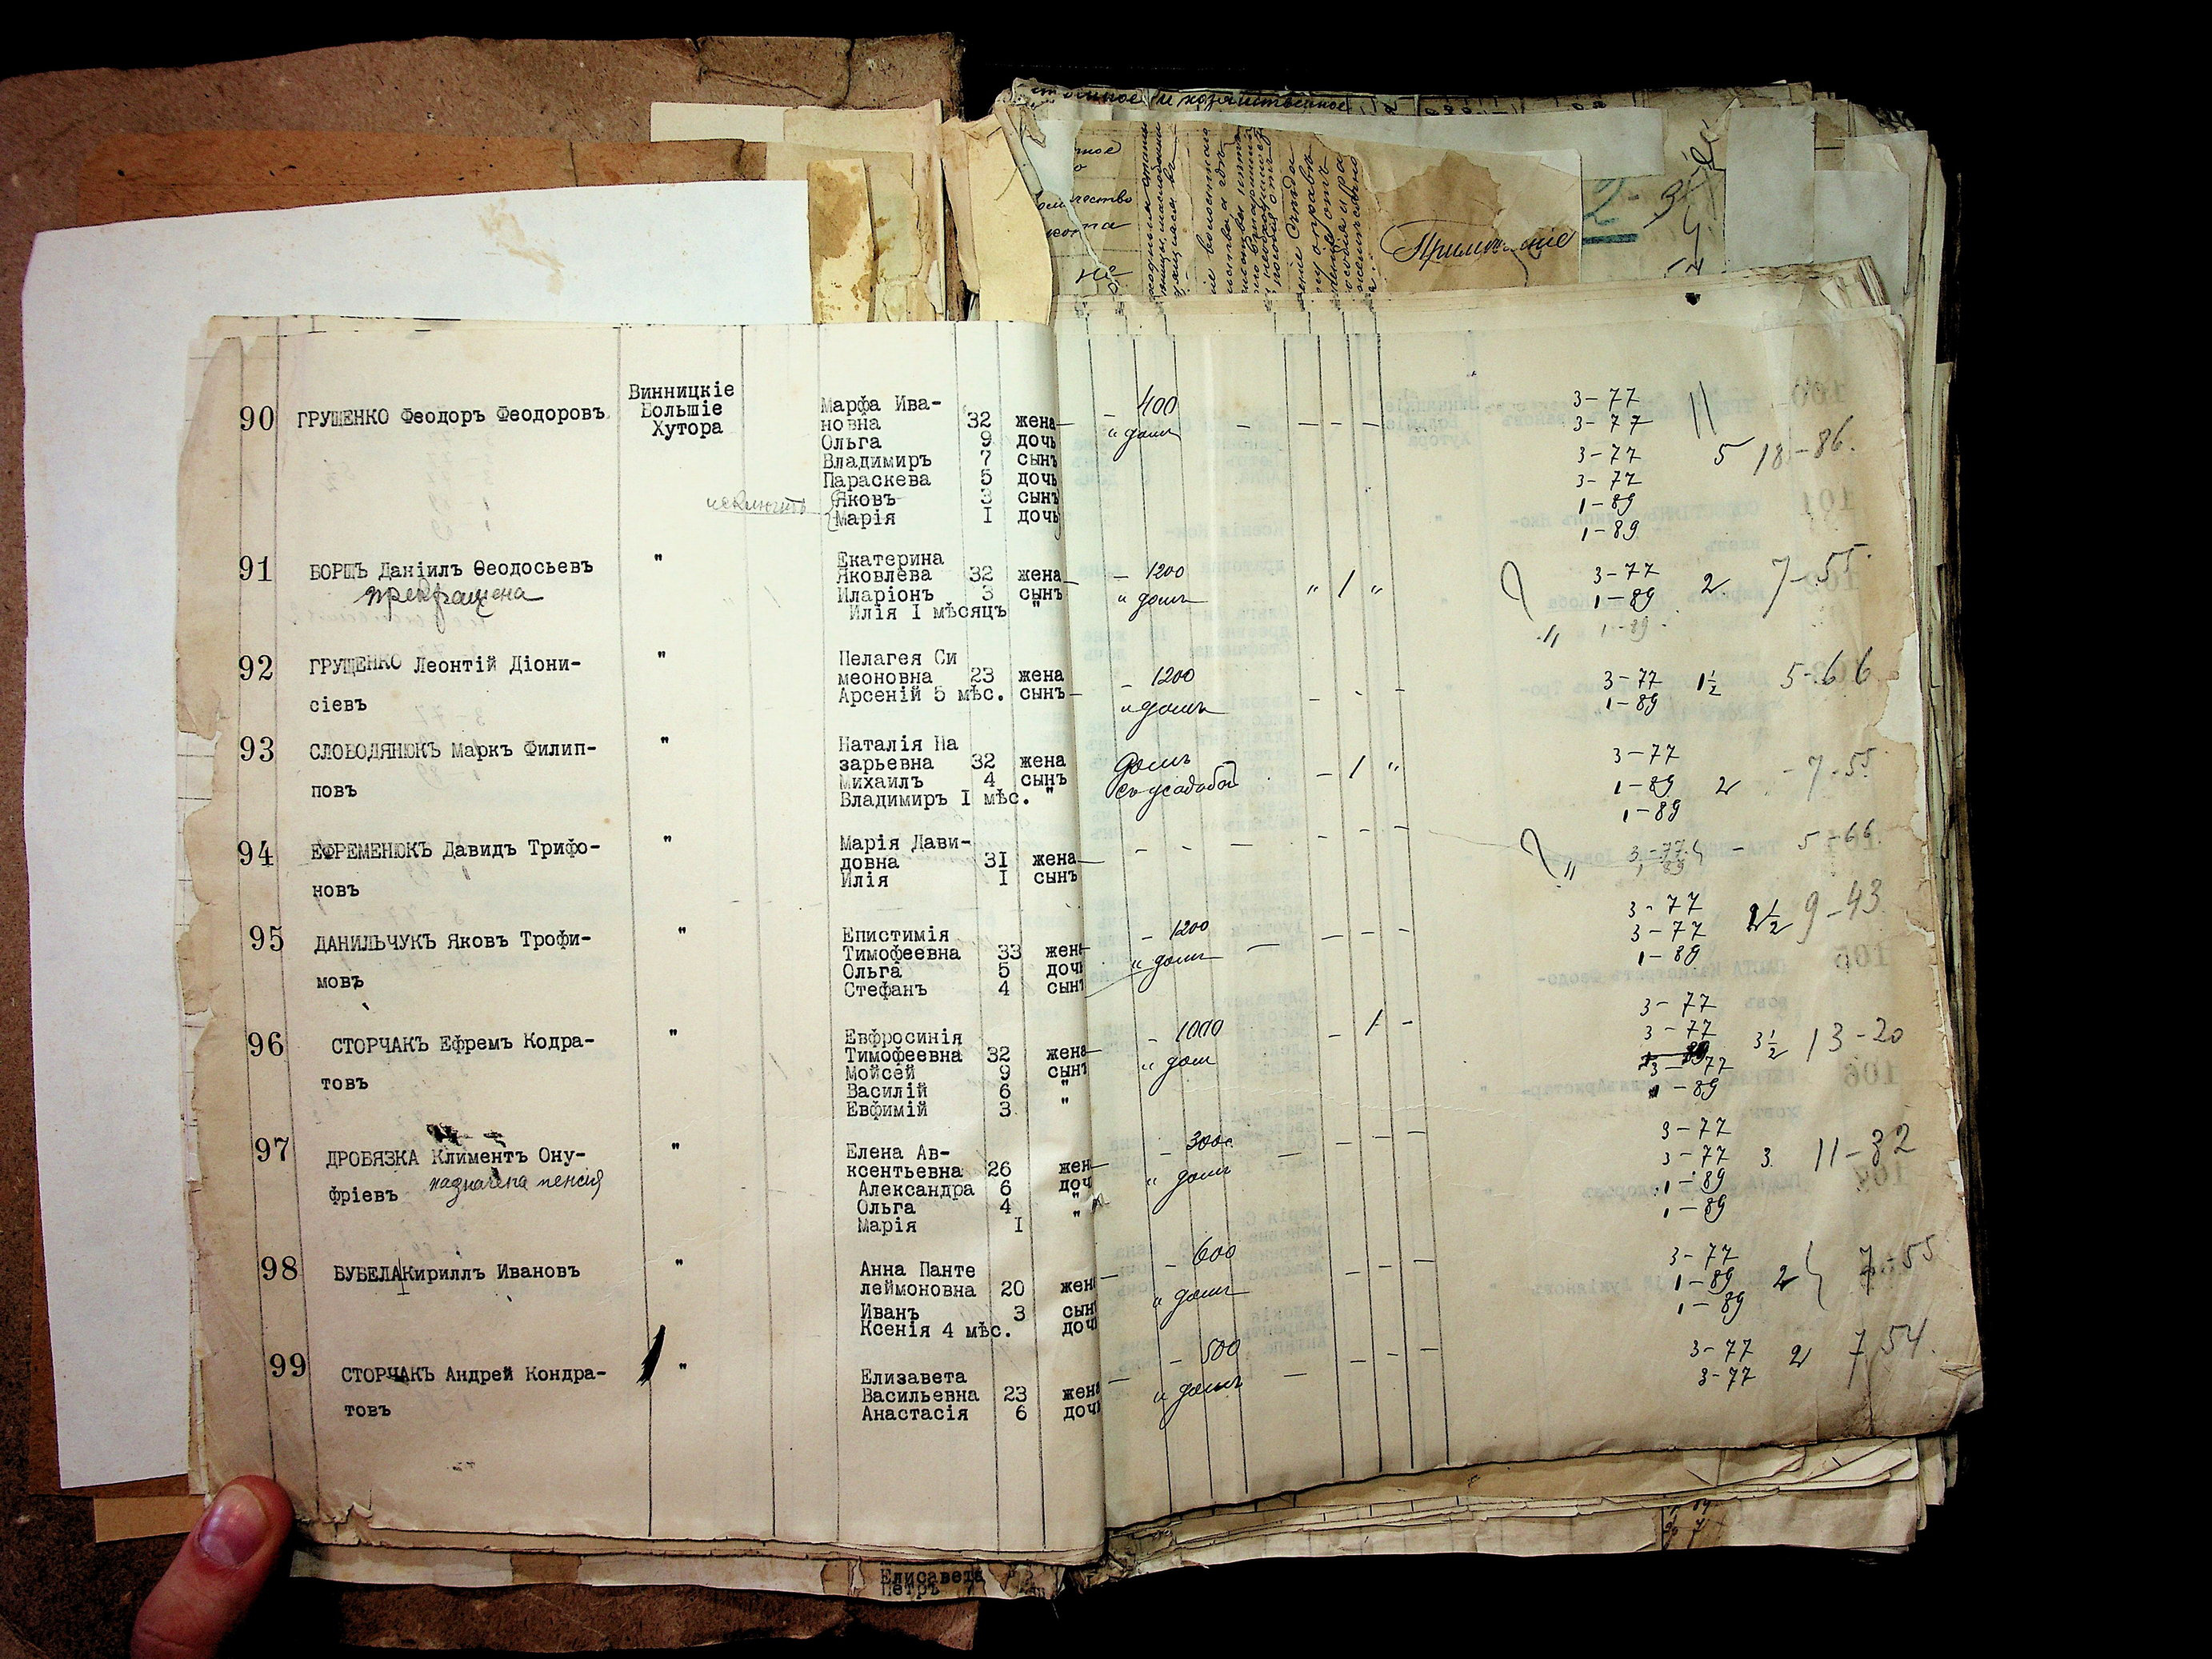 90 ГРУЩЕНКО Феодоръ Феодоровъ
Винницкіе
Большіе
Хутора
Марфа Ива-
новна 32 жена
Ольга 9 дочь
Владимиръ 7 сынъ
Параскева 5 дочь
исключить Яковъ 3 сынъ
Марія I дочь
– 400
" домъ
3-77
3-77
3-77 5 18-86.
3-77
1-89
1-89
91 БОРЩЪ Даніилъ Ѳеодосьевъ "
прекращена
Екатерина
Яковлева 32 жена
Иларіонъ 3 сынъ
Илія I мѣсяцъ "
– 1200
" домъ
" 1 "
3-77 2 7-55
1-89
" 1-89
92 ГРУЩЕНКО Леонтій Діони-
сіевъ
"
Пелагея Си
меоновна 23 жена
Арсеній 5 мѣс. сынъ
– 1200
" домъ
3-77 1½ 5-66
1-89
93 СЛОБОДЯНЮКЪ Маркъ Филип-
повъ
"
Наталія На
зарьевна 32 жена
Михаилъ 4 сынъ
Владимиръ I мѣс. "
домъ
съ усадьбой
– 1 "
3-77
1-89 2 -7-55
1-89
94 ЕФРЕМЕНЮКЪ Давидъ Трифо-
новъ
"
Марія Дави-
довна 31 жена
Илія I сынъ
– – –
" 3-77 – 5-66
1-89
95 ДАНИЛЬЧУКЪ Яковъ Трофи-
мовъ
"
Епистимія
Тимофеевна 33 жена
Ольга 5 дочь
Стефанъ 4 сынъ
– 1200
" домъ
3-77
3-77 9-43
1-89
96 СТОРЧАКЪ Ефремъ Кодра-
товъ
"
Евфросинія
Тимофеевна 32 жена
Мойсей 9 сынъ
Василій 6 "
Евфимій 3 "
– 1000
" дом
– 1 –
3-77
3-77 3½ 13-20
3-77
1-89
97 ДРОБЯЗКА Климентъ Ону-
фріевъ назначена пенсія
"
Елена Ав-
ксентьевна 26 жен
Александра 6 доч
Ольга 4 "
Марія I "
– 300
" домъ
3-77
3-77 3 11-32
1-89
1-89
98 БУБЕЛА Кириллъ Ивановъ "
Анна Панте
леймоновна 20 жен
Иванъ 3 сын
Ксенія 4 мѣс. доч
– 600
" домъ
3-77
1-89 2 7-55
1-89
99 СТОРЧАКЪ Андрей Кондра-
товъ
"
Елизавета
Васильевна 23 жен
Анастасія 6 доч
– 500
" домъ
3-77 2 7,54
3-77
Примѣчаніе
Елисавета
Петръ 7